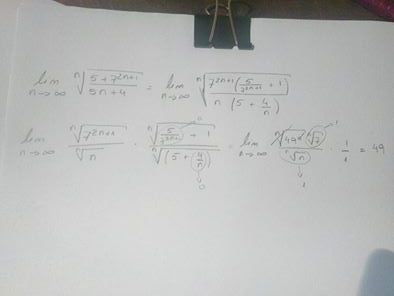 lim n→∞ ⁿ√((5 + 7^(2n+1))/(5n + 4)) = lim n→∞ ⁿ√((7^(2n+1) (5/7^(2n+1) + 1))/(n (5 + 4/n)))
lim n→∞ ⁿ√(7^(2n+1))/ⁿ√n · ⁿ√(5/7^(2n+1) + 1)/ⁿ√((5 + 4/n)) = lim n→∞ (ⁿ√(49ⁿ) ⁿ√7)/ⁿ√n · 1/1 = 49
0 1
0 1